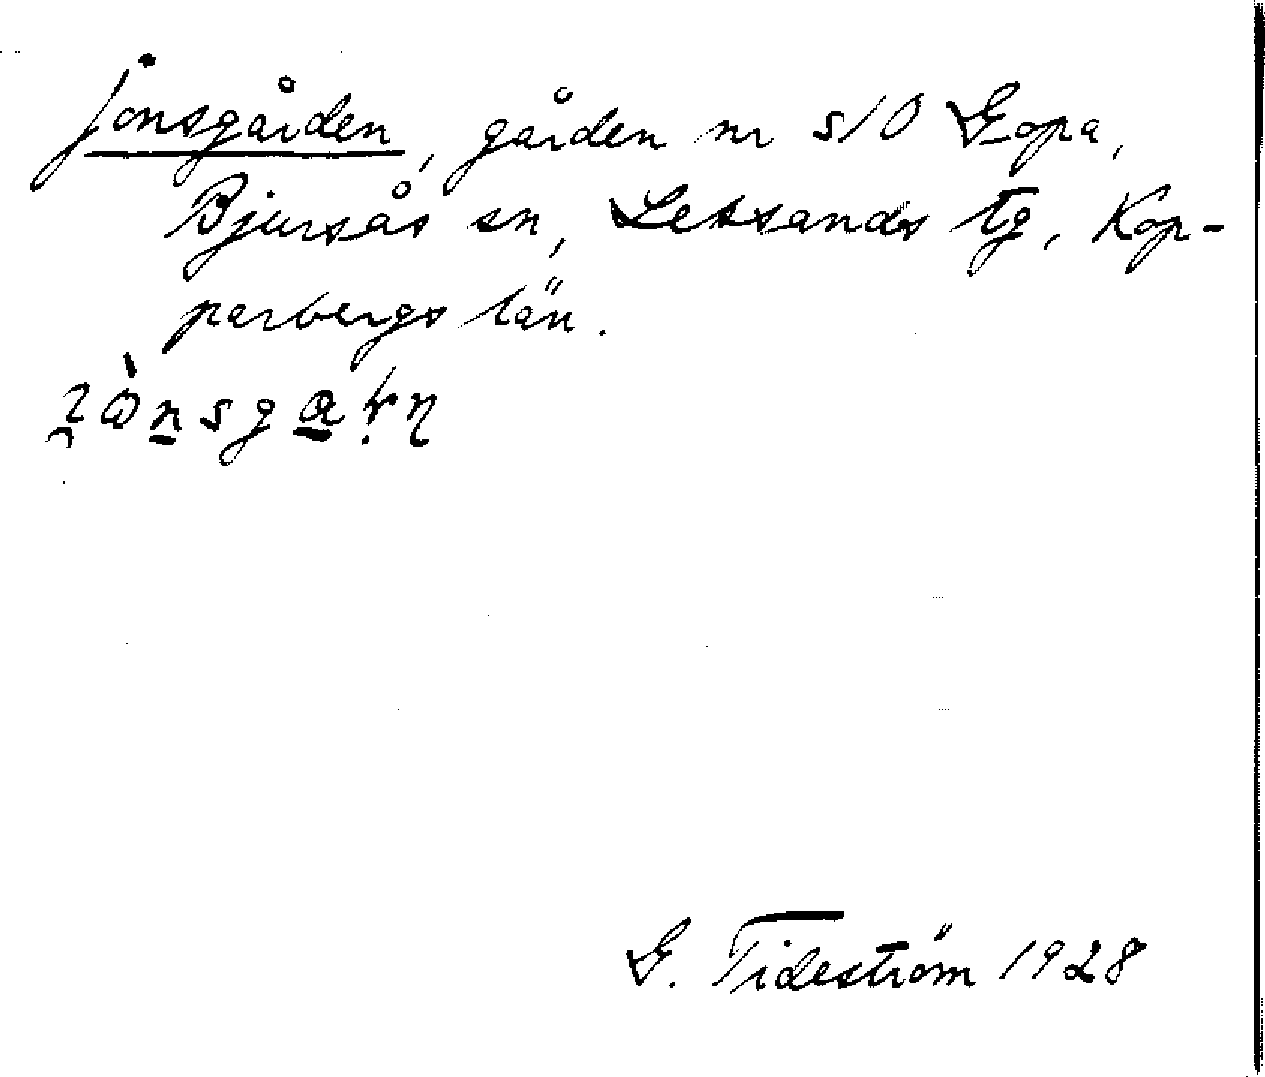 jonsgården, gården nr s10 Gopa,
Bjursås sn, Leksands tg, Kop-
parbergs län.
G. Tideström 1928